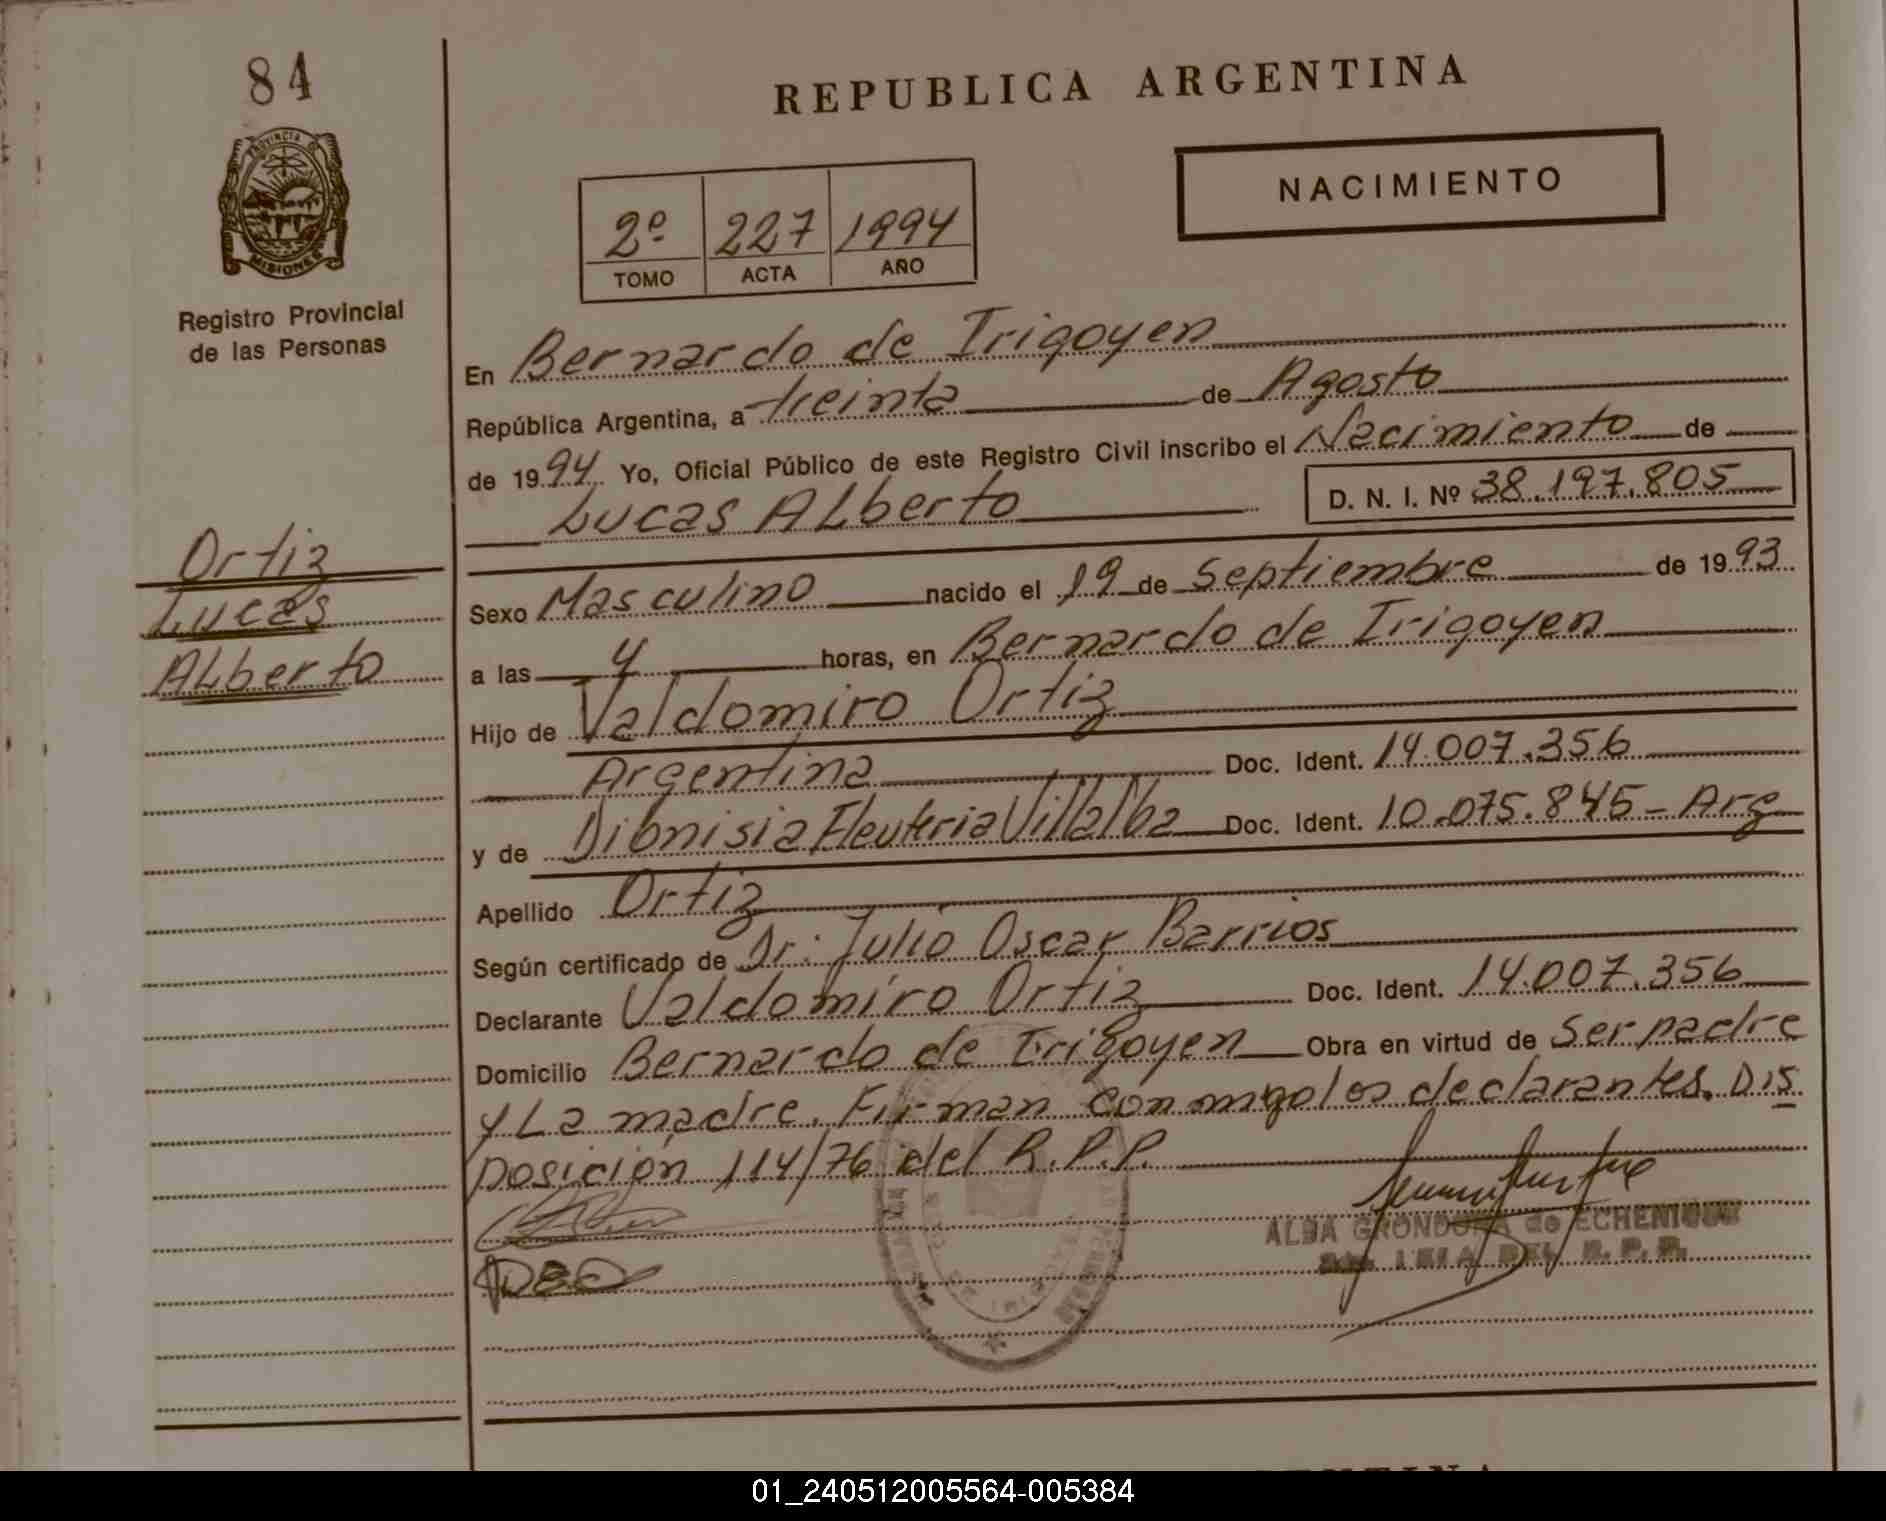 84
REPUBLICA ARGENTINA
PROVINCIA D
MISIONES
NACIMIENTO
2º 227 1994
TOMO ACTA AÑO
Registro Provincial
de las Personas
En Bernardo de Irigoyen
República Argentina, a treinta de Agosto
de 1994 Yo, Oficial Público de este Registro Civil inscribo el Nacimiento de
Lucas ALberto D. N. I. Nº 38.197.805
Ortiz
Lucas
ALberto
Sexo Masculino nacido el 19 de Septiembre de 1993
a las 4 horas, en Bernardo de Irigoyen
Hijo de Valdomiro Ortiz
Argentina Doc. Ident. 14.007.356
y de Dionisia Eleuteria Villalba Doc. Ident. 10.075.845 - Arg
Apellido Ortiz
Según certificado de Dr: Julio Oscar Barrios
Declarante Valdomiro Ortiz Doc. Ident. 14.007.356
Domicilio Bernardo de Irigoyen Obra en virtud de Ser padre
y La madre. Firman conmigo los declarantes. Dis
posición 114/76 del R.P.P.
ALBA GRONDONA de ECHENIQUE
DEL R. P. P.
01_240512005564-005384